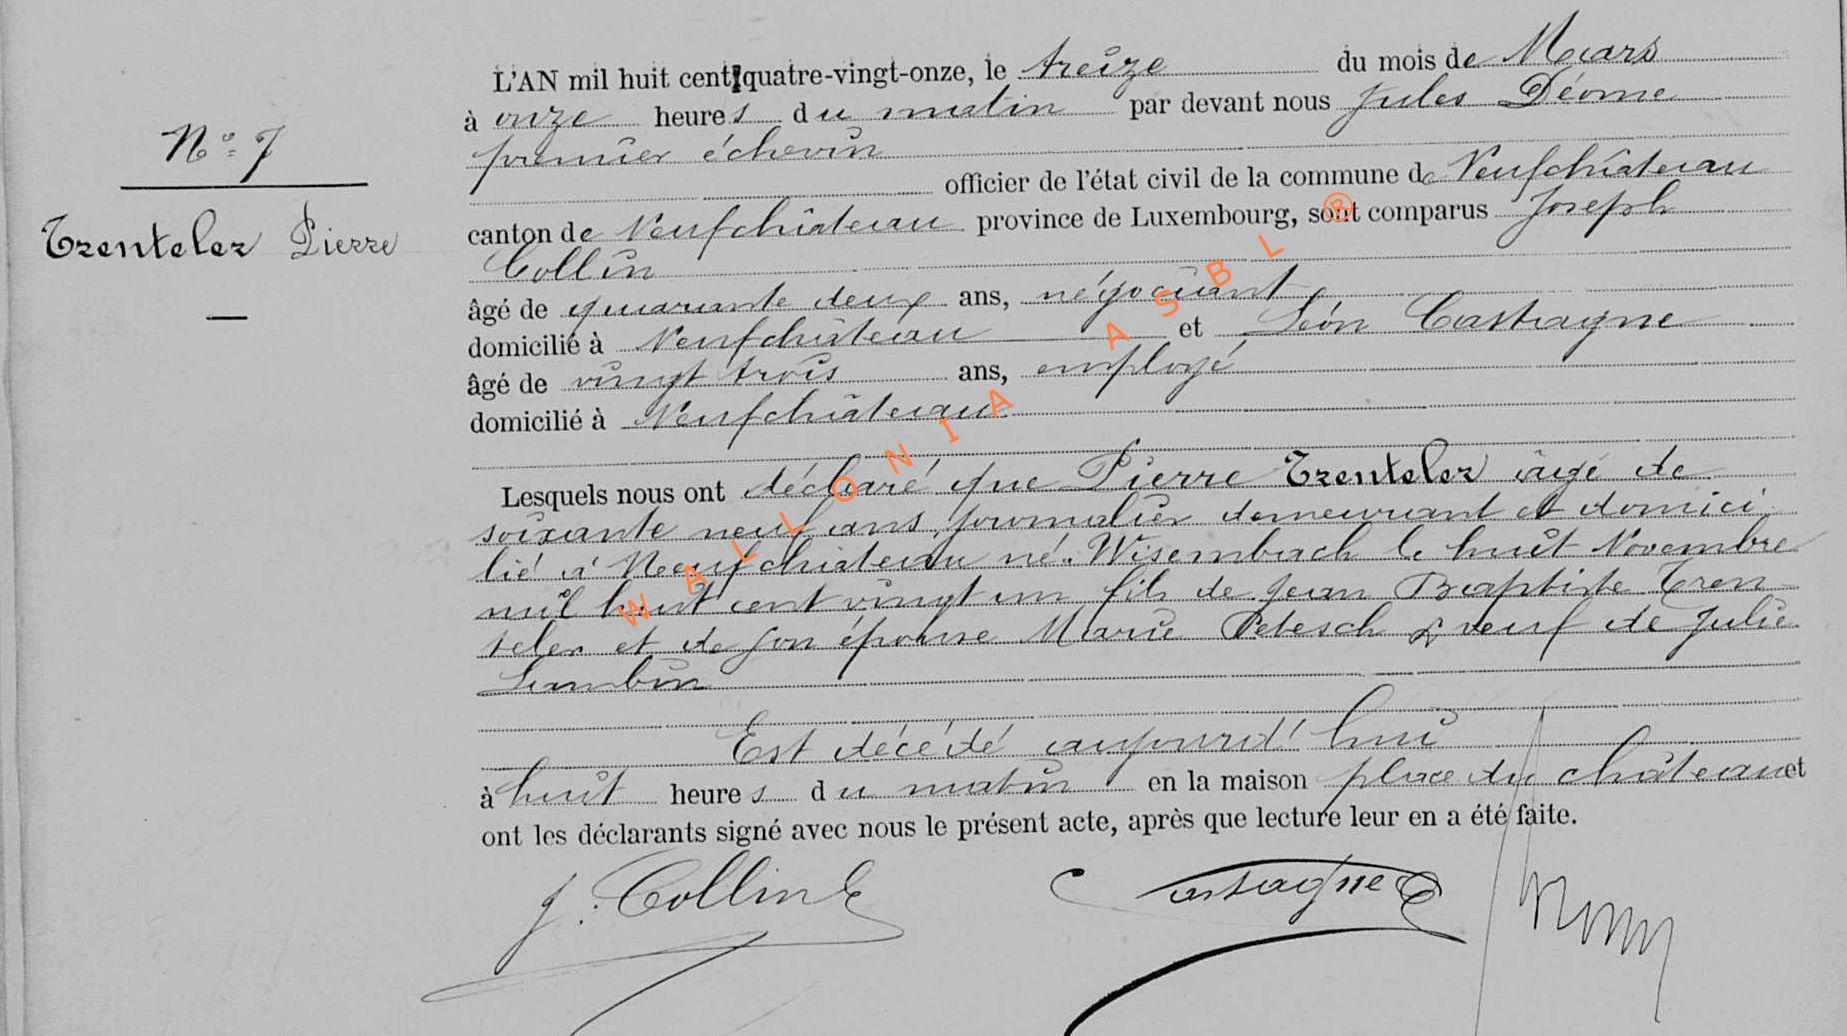 N° 7
Trenteler Pierre
L'AN mil huit cent quatre-vingt-onze, le treize du mois de Mars
à onze heures du matin par devant nous Jules Déome
premier échevin
officier de l'état civil de la commune de Neufchâteau
canton de Neufchâteau province de Luxembourg, sont comparus Joseph
Collin
âgé de quarante deux ans, négociant
domicilié à Neufchâteau et Léon Castagne
âgé de vingt trois ans, employé
domicilié à Neufchâteau
Lesquels nous ont déclaré que Pierre Trenteler âgé de
soixante neuf ans, journalier demeurant et domici
lié à Neufchâteau né Wisembach le huit Novembre
mil huit cent vingt un fils de Jean Baptiste Tren-
teler et de son épouse Marie Petesch & veuf de Julie
Lambin
Est décédé aujourd'hui
à huit heures du matin en la maison place du château et
ont les déclarants signé avec nous le présent acte, après que lecture leur en a été faite.
J. Collin Castagne
WALLONIA ASBL ®